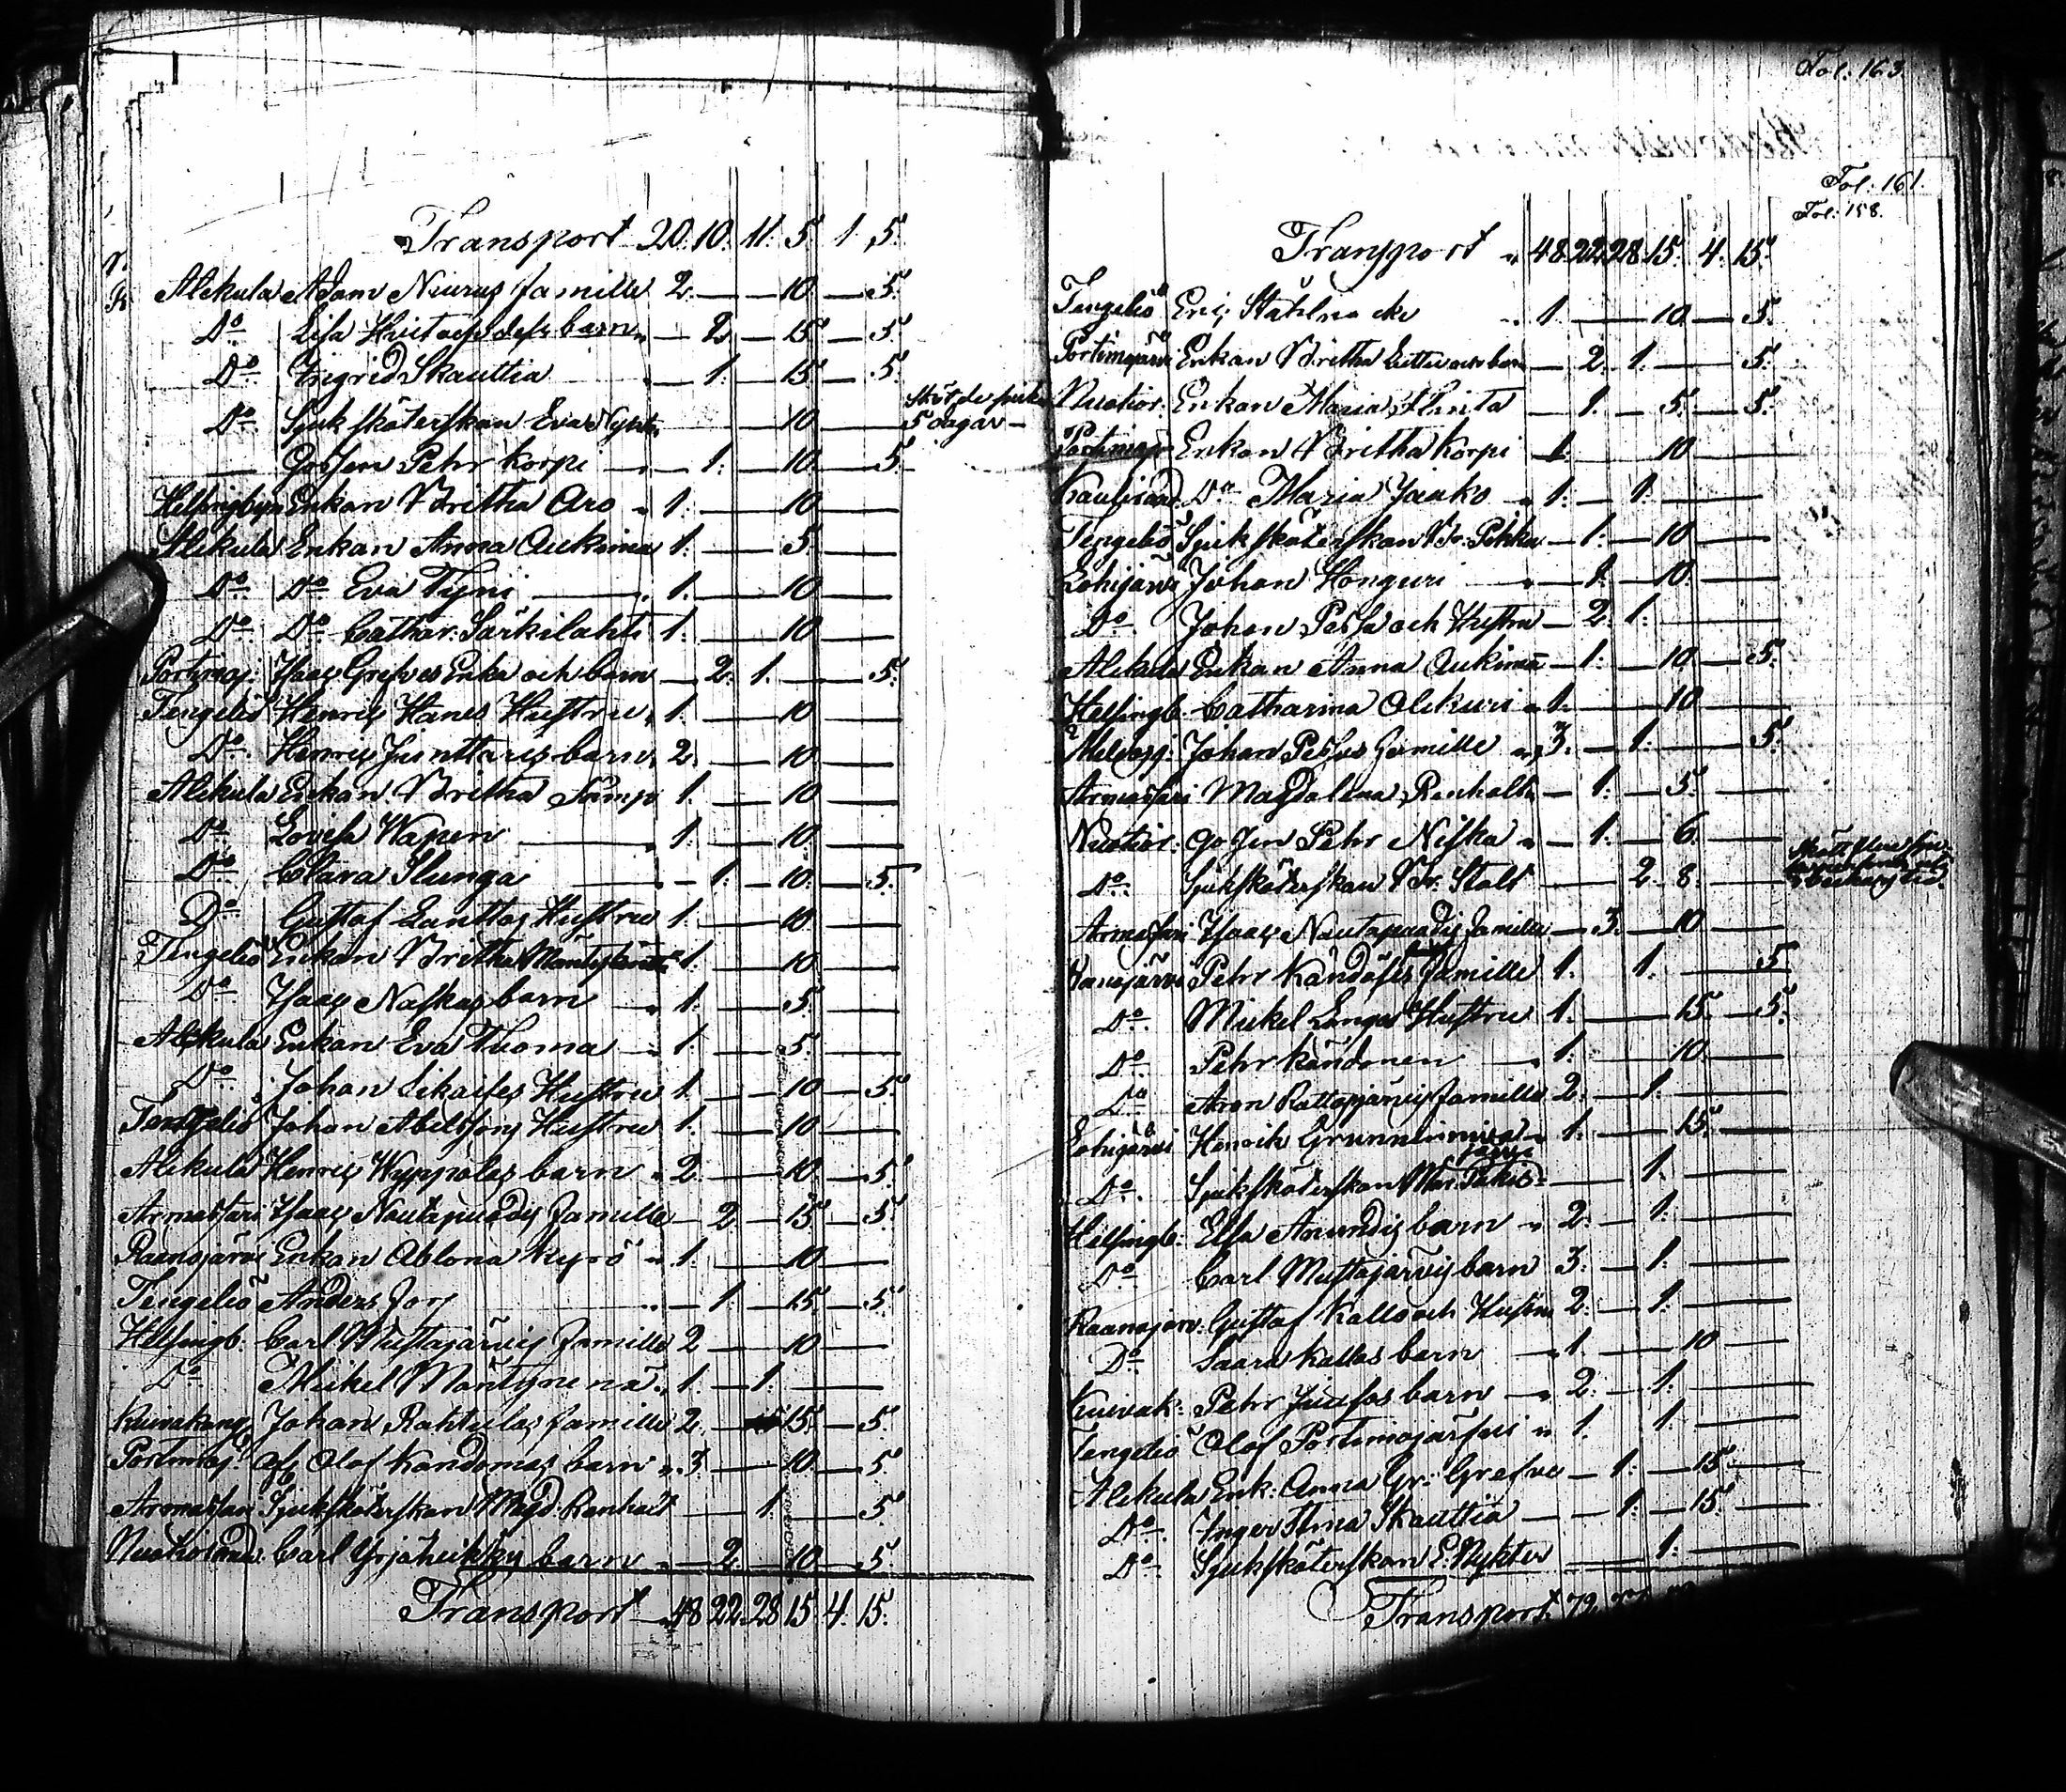 Transport 20. 10. 11. 5 1 5.
Alekula Adam Niurus familie 2. — — 10 — 5.
Do. Lisa barn — 2. — 15 — 5
Do. Ingrid Skauttia — 1. — 15 — 5.
Do. Sjuksköterskan Eva 10 — 5 dagar —
— Gossen Pehr Korpi — 1. — 10. — 5.
Helsingbyn Enkan Britha Aro 1. — 10 —
Alekula Enkan Anna Aukimaa 1. — 5. —
Do. Do. Eva Tyni — 1. — 10 —
Do. Do. Cathar: Särkilahti 1. — 10 —
Portimoj: Isaac Grefves Enka och barn — 2. 1. — 5.
Tengeliö Henric Hanes Hustru 1. — 10 —
Do. Henric Junttaris barn 2. — 10 —
Alekula Enkan Britha Sämpi 1. — 10 —
Do. Lovisa Wapen — 1. — 10. —
Do. Clara Ilunga — 1. — 10. — 5.
Do. Gustaf Lanttos Hustru 1. — 10 —
Tengeliö Enkan Britha 1. — 10 —
Do. Isaac Naskas barn 1. — 5. —
Alekula Enkan Eva Thoma 1. — 5. —
Do. Johan Sikaises Hustru 1. — 10 — 5.
Tengeliö Johan Abelssons Hustru 1. — 10 —
Alekula Henric Wyppolas barn 2. — 10. — 5.
Armassari Isaac Nautapuodis familie — 2 — 15 — 5.
Raanojärvi Enkan Ablona Kyrö 1. — 10 —
Tengeliö Anders Jorj — 1. — 15. — 5.
Helsingb: Carl Mustajärvis familie 2 — 10 —
Do. Mickel Mäntynenä 1. — 1. —
Kuivakang Johan Rahtulas familie 2. — 15. — 5.
Portimoj: Olof Kandomas barn 3 — 10 — 5.
Armassari Sjuksköterskan Magd. Renhalt — 1. — 5.
Nuotioranda: Carl Yrjäheikkis barn — 2. — 10 — 5.
Transport 48 22. 28 15 4. 15.
Fol. 163.
Fol. 161.
Fol: 158.
Transport 48. 22. 28. 15. 4. 15.
Tengeliö Eric Ståhlnacke 1. — 10. — 5.
Portimojärvi Enkan Britha och barn — 2. 1. — 5.
Nuotior. Enkan Maria Hinta — 1. — 5. — 5.
Portimojr Enkan Britha Korpi 1. — 10 —
Kauliranda Do. Maria Jaako 1. — 1. —
Tengeliö Sjuksköterskan Br. Pekka — 1. — 10 —
Lohijärvi Johan Honguri — 1. — 10 —
Do. Johan Pessa och Hustru — 2. 1. —
Alekula Enkan Anna Aukimaa — 1. — 10 — 5.
Helsingb: Catharina Alekuri 1. — 10 —
Johan Pessas familie 3. — 1. — 5.
Armassari Magdalena Renhalt — 1. — 5. —
Nuotior: Gossen Pehr Niska 1. — 6. —
Do. Sjuksköterskan Br. Stålt — 2. 8. —
Armassari Isaac Nautapuodis familie — 3. — 10 —
Kanojärvi Pehr familie 1. 1. — 5
Do. Mickel Langas Hustru 1. — 15. — 5.
Do. Pehr Kändonen 1. — 10 —
Do. Aron Rattojärvis familie 2. — 1. —
Lohijärvi Henrik 1. — 15. —
Do. Sjuksköterskan — 1. —
Helsingb: Elsa Anundis barn 2. — 1. —
Do. Carl Mustajärvis barn 3. — 1. —
Raanojerv: Gustaf Kallo och Hustru 2. — 1. —
Do. Saara Kallos barn 1. — 10 —
Kuivak: Pehr Juusos barn 2. — 1. —
Tengeliö Olof Portimojärfvi 1. 1. —
Alekula Enk: Anna Gr: Grefve — 1. — 15. —
Do. Inger Skauttia — 1. — 15. —
Do. Sjuksköterskan E. Nykter — 1. —
Transport 72.